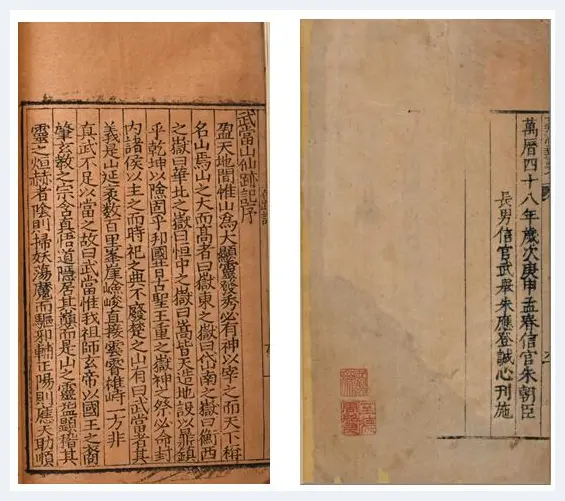 武當山仙跡記序
盈天地間惟山為大顯靈發秀必有神以宰之而天下稱
名山焉山之大而高者曰嶽東之嶽曰岱南之嶽曰衡西
之嶽曰華北之嶽曰恒中之嶽曰嵩皆天造地設以鼎鎮
乎乾坤以險固乎邦國昔古聖王重之嶽神之祭必命封
內諸侯以主之而時祀之典不廢楚之山有曰武當者其
義是山延袤數百里峯崖嶮峻直接雲霄雄峙一方非
真武不足以當之故曰武當惟我祖師玄帝以國王之裔
肇玄教之宗 真悟道隱居其巔而是山之靈益顯 其
靈之烜赫者陰則掃妖蕩魔而驅邪輔正陽則應天助順
萬曆四十八年歲次庚申孟春信官朱朝臣
長男信官武舉朱應登誠心刊施